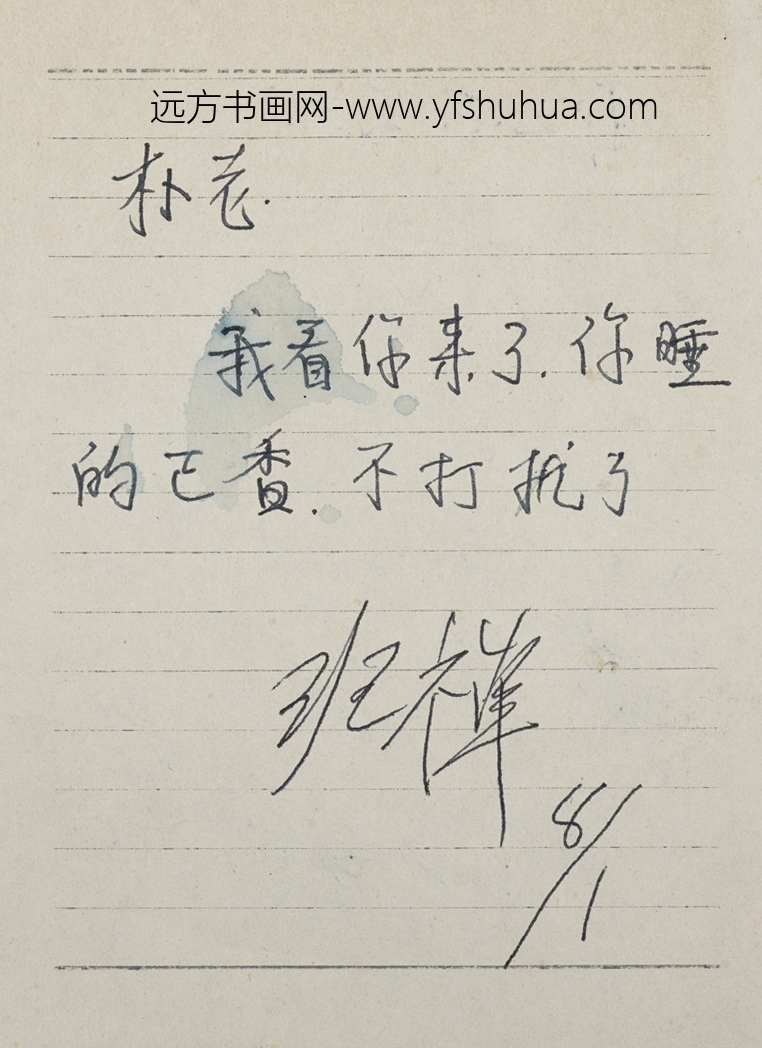 远方书画网-www.yfshuhua.com
朴老.
我看你来了.你睡
的正香.不打扰了
班禅
8/1